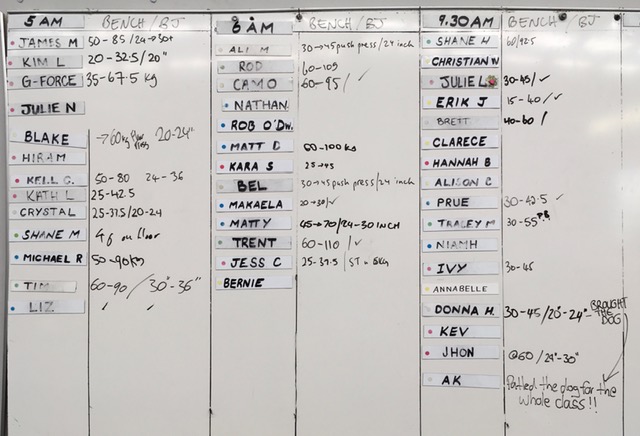 5 AM BENCH/BJ
JAMES M 50-85/24→30+
KIM L 20-32.5/20"
G-FORCE 35-67.5 kg
JULIE N
BLAKE →60kg 20-24"
HIRAM
KELL G. 50-80 24-36
KATH L 25-42.5
CRYSTAL 25-37.5/20-24
SHANE M on floor
MICHAEL R 50-90kg
TIM 60-90/30"-36"
LIZ ✓ ✓
6 AM BENCH/BJ
ALI M 30→45 push press/24 inch
ROD 60-105
CAMO 60-95/✓
NATHAN
ROB O'DW.
MATT D 60-100kg
KARA S 25-45
BEL 30→45 push press/24 inch
MAKAELA 20-30/✓
MATTY 45→70/24-30 INCH
TRENT 60-110/✓
JESS C 25-37.5/ST = 15kg
BERNIE
9.30 AM BENCH/BJ
SHANE H 60/92.5
CHRISTIAN W
JULIE L 30-45/✓
ERIK J 15-40/✓
BRETT 40-60/
CLARECE
HANNAH B
ALISON C
PRUE 30-42.5 ✓
TRACEY M 30-55 PB
NIAMH
IVY 30-45
ANNABELLE
DONNA H. 30-45/20"-24"- BROUGHT THE DOG
KEV
JHON @60/24"-30"
AK Patted the dog for the
whole class!!